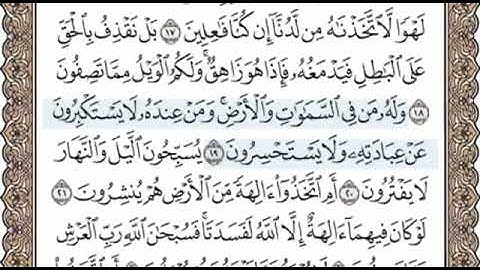 لَهْوًا لَّاتَّخَذْنَٰهُ مِن لَّدُنَّآ إِن كُنَّا فَٰعِلِينَ ١٧ بَلْ نَقْذِفُ بِٱلْحَقِّ
عَلَى ٱلْبَٰطِلِ فَيَدْمَغُهُۥ فَإِذَا هُوَ زَاهِقٌ ۚ وَلَكُمُ ٱلْوَيْلُ مِمَّا تَصِفُونَ
١٨ وَلَهُۥ مَن فِى ٱلسَّمَٰوَٰتِ وَٱلْأَرْضِ ۚ وَمَنْ عِندَهُۥ لَا يَسْتَكْبِرُونَ
عَنْ عِبَادَتِهِۦ وَلَا يَسْتَحْسِرُونَ ١٩ يُسَبِّحُونَ ٱلَّيْلَ وَٱلنَّهَارَ
لَا يَفْتُرُونَ ٢٠ أَمِ ٱتَّخَذُوٓا۟ ءَالِهَةً مِّنَ ٱلْأَرْضِ هُمْ يُنشِرُونَ ٢١
لَوْ كَانَ فِيهِمَآ ءَالِهَةٌ إِلَّا ٱللَّهُ لَفَسَدَتَا ۚ فَسُبْحَٰنَ ٱللَّهِ رَبِّ ٱلْعَرْشِ